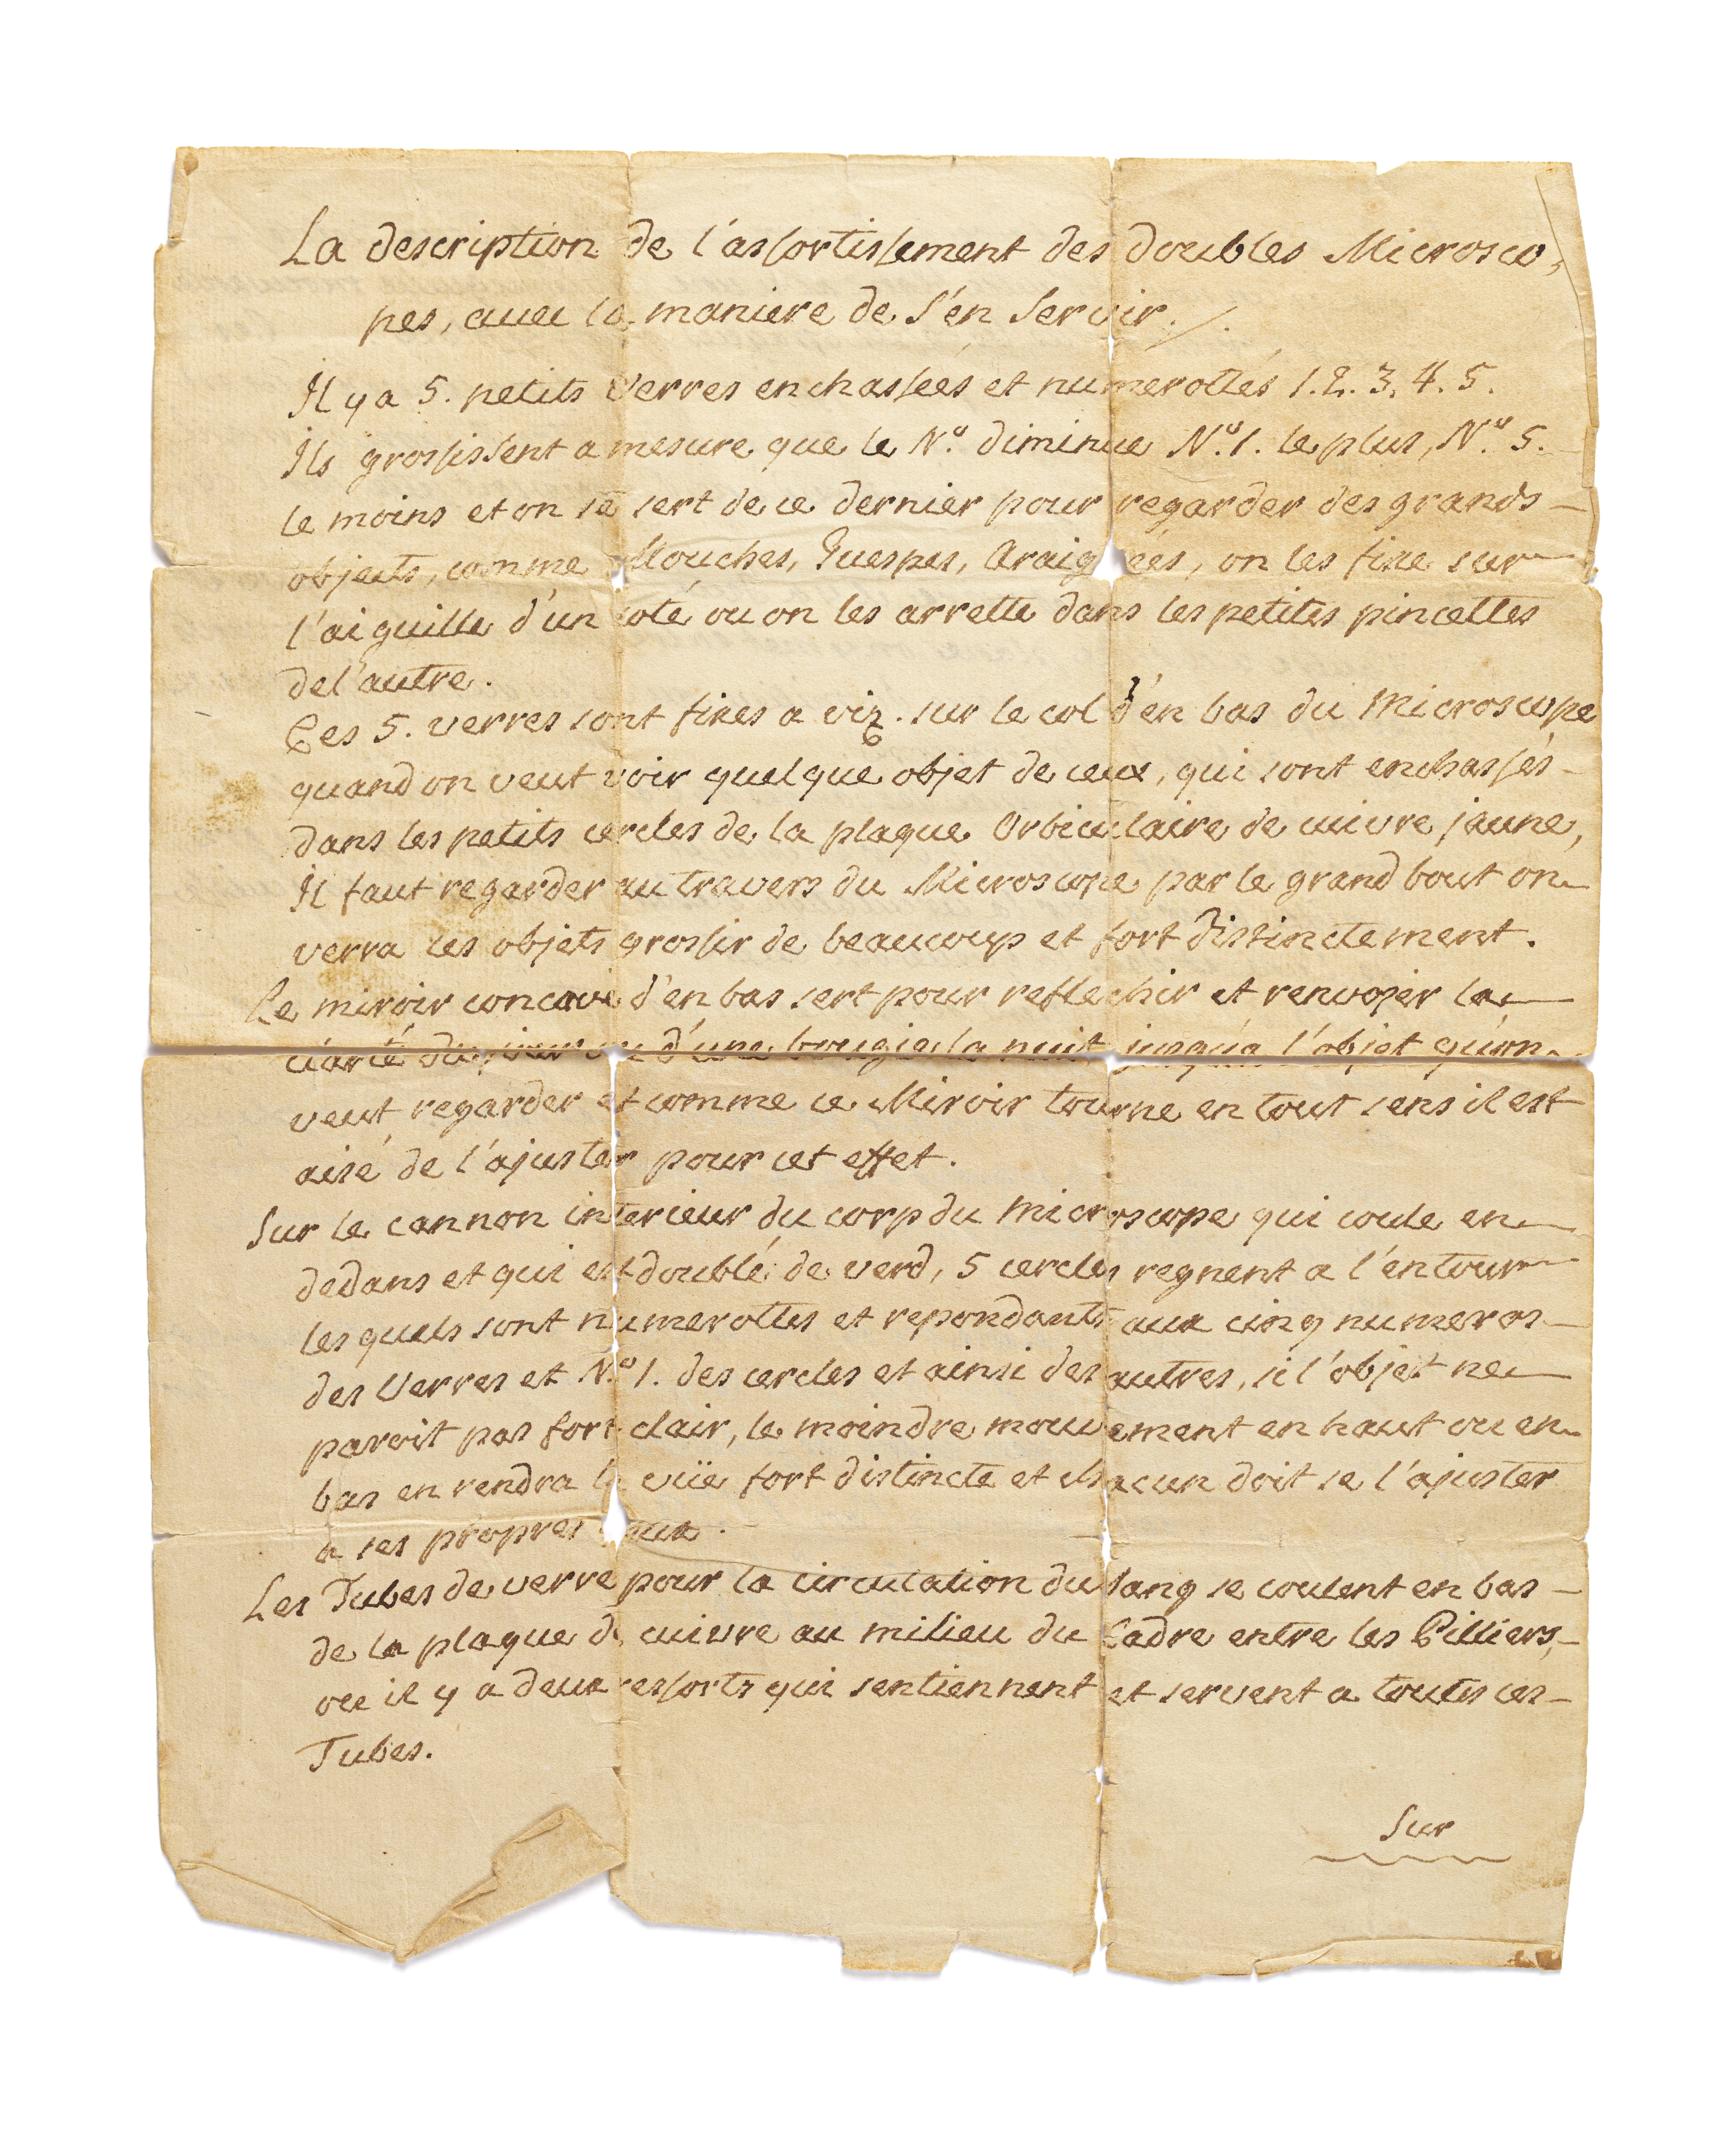 La description de l'assortissement des doubles Microsco,
pes, avec la maniere de s'en servir./.
Il y a 5. petits Verres enchasseés et numérottés 1.2.3.4.5.
Ils grossissent a mesure que le No. diminue No.1. le plus, No. 5.
le moins et on se sert de ce dernier pour regarder des grands
objects, comme Mouches, Guespes, Araig eés, on les fixe sur
l'aiguille d'un coté ou on les arrette dans les petites pincettes
de l'autre.
Ces 5. verres sont fixes a viz. sur le col d'én bas du Microscope
quand on veut voir quelque objet de ceux, qui sont enchassés
dans les petits cercles de la plaque Orbiculaire de cuivre jaune,
Il faut regarder au travers du Microscope par le grand bout on
verra ces objets grossir de beaucoup et fort distinctement.
Le miroir concave d'en bas sert pour reflechir et renvoyer la
clarté du jour ou d'une bougie la nuit jusqu'a l'objet qu'on
veut regarder et comme ce Miroir tourne en tout sens il est
aisé de l'ajuster pour cet effet.
Sur le cannon interieur du corp du Microscope qui coule en
dedans et qui est doublé de verd, 5 cercles regnent a l'éntour
les quels sont numerottes et repondants aux cinq numeros
des Verres et No. 1. des cercles et ainsi des autres, si l'objet ne
paroit pas fort clair, le moindre mouvement en haut ou en
bas en rendra la vüe fort distincte et chacun doit se l'ajuster
a ses propres yeux.
Les Tubes de verre pour la circulation du sang se coulent en bas
de la plaque de cuivre au milieu du Cadre entre les Pilliers,
ou il y a deux ressorts qui sentiennent et servent a toutes ces
Tubes.
Sur